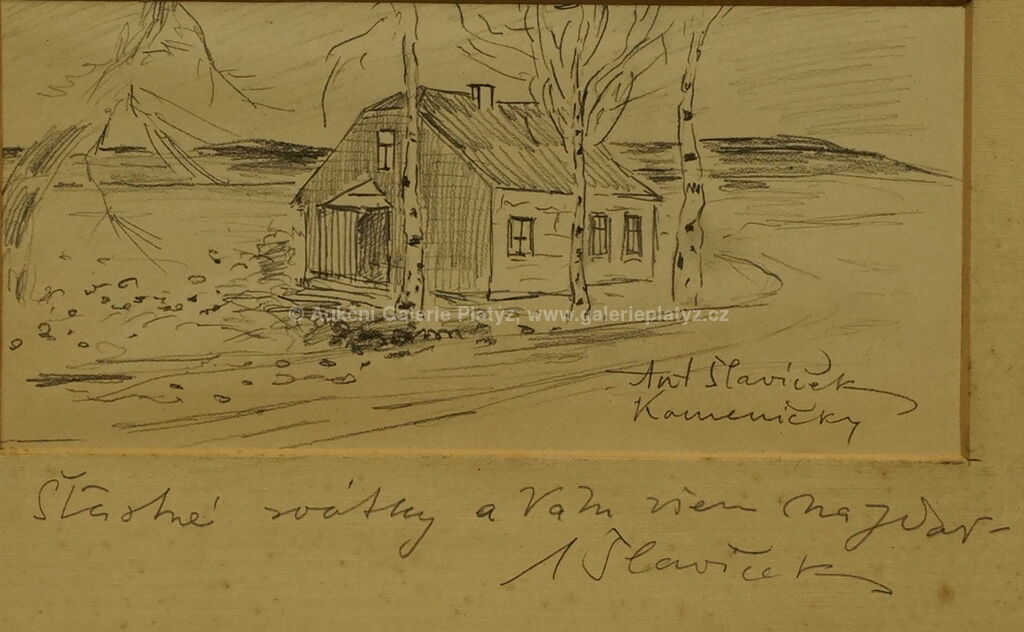 © Aukční Galerie Platýz, www.galerieplatyz.cz
Ant Slavíček
Kameničky
Šťastné svátky a Vám všem nazdar
A Slavíček